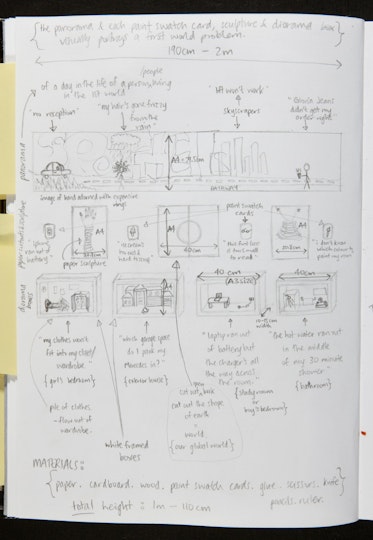 {the panorama & each paint swatch card, sculpture & diorama box
visually portrays a first world problem.}
190cm - 2m
/people
of a day in the life of a person living
in the 1st world
"no reception"
"my hair's gone frezzy
from the
rain"
"lift won't work"
skyscrapers
didn't get my
order right"
panorama
A4
PATHWAY
image of hand adorned with expensive
rings!
paint swatch
cards
A4
A4
A4
40cm
paper sculpture
"this first loo
is too small
to read"
"I don't know
which colour to
paint my room"
diorama
boxes
40 cm
(A3 size)
40cm
width
"my clothes won't
fit into my closet/
wardrobe"
{girl's bedroom}
"which garage space
do I park my
Mercedes in?"
{colour house}
"laptop ran out
of battery but
the charger's all
the way across
the room."
{study room
or
boy's bedroom}
"the hot water ran out
in the middle
of my 30 minute
shower"
{bathroom}
pile of clothes
-flow out of
wardrobe.
cut out the shape
of earth
=
world
{our global world}
white framed
boxes
MATERIALS:
{paper. cardboard. wood. paint swatch cards. glue. scissors. knife
pencils. ruler}
total height : 1m - 110cm